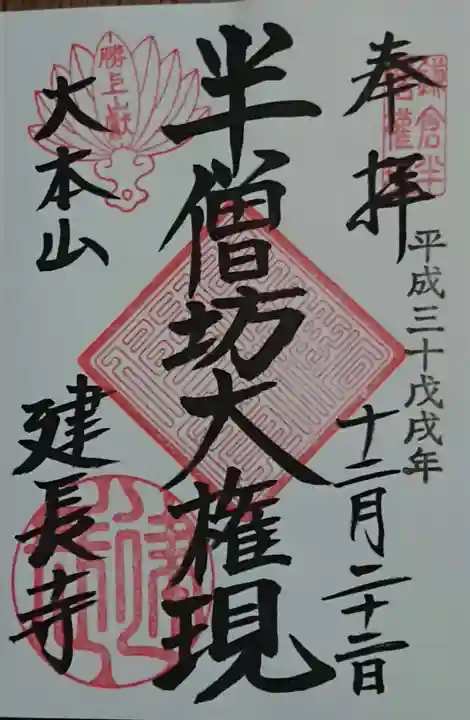 奉拝
平成三十戊戌年
十二月二十二日
半僧坊大権現
大本山
建長寺
勝上山献